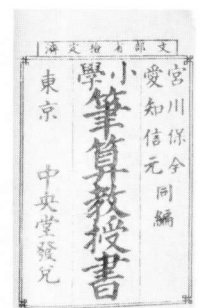 文部省検定済
宮川保全
愛知信元 同編
小學
筆算教授書
東京 中央堂發兌